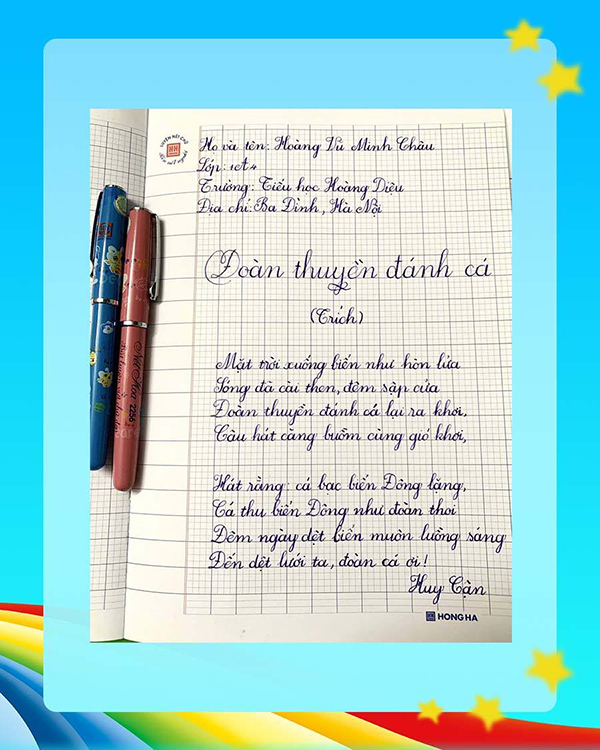 Họ và tên: Hoàng Vũ Minh Châu
Lớp: 1A4
Trường: Tiểu học Hoàng Diệu
Địa chỉ: Ba Đình, Hà Nội
Đoàn thuyền đánh cá
(Trích)
Mặt trời xuống biển như hòn lửa
Sóng đã cài then, đêm sập cửa
Đoàn thuyền đánh cá lại ra khơi,
Câu hát căng buồm cùng gió khơi,
Hát rằng: cá bạc biển Đông lặng,
Cá thu biển Đông như đoàn thoi
Đêm ngày dệt biển muôn luồng sáng
Đến dệt lưới ta, đoàn cá ơi!
Huy Cận
HONG HA